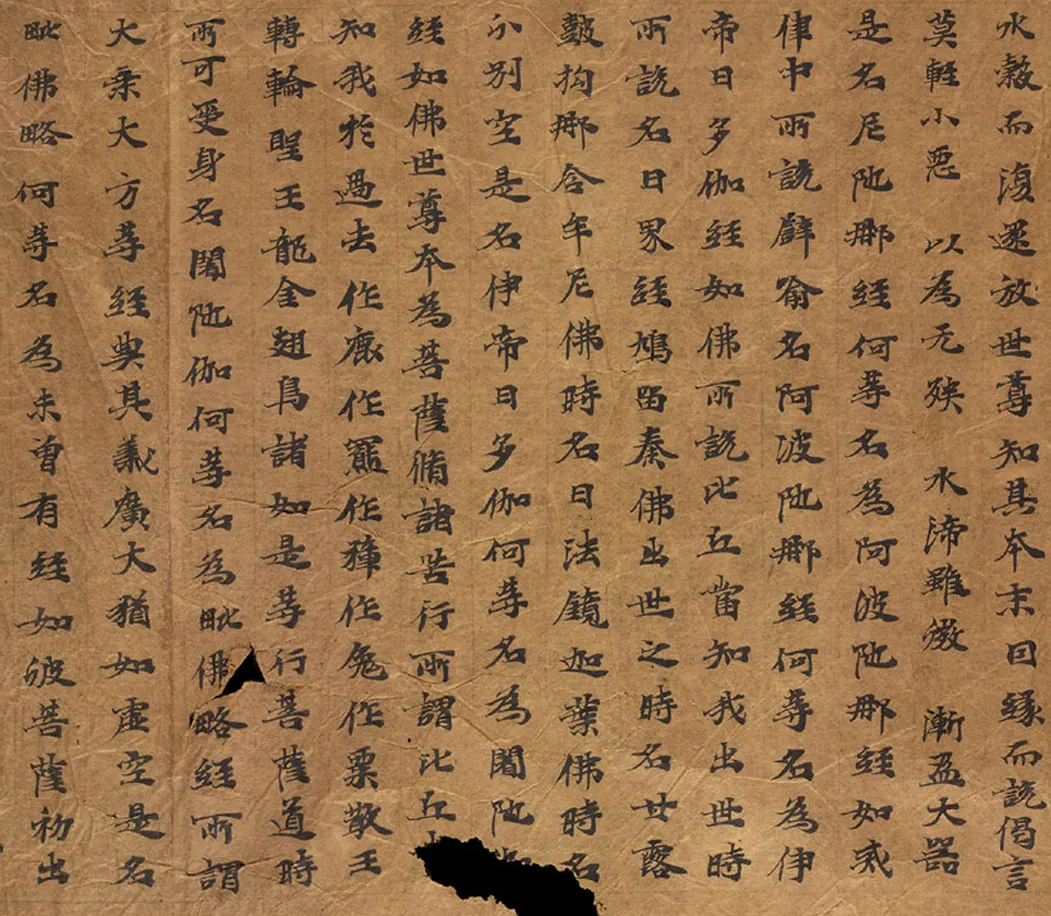 水穀而復還放世尊知其本末因緣而說偈言
莫輕小惡 以為无殃 水渧雖微 漸盈大器
是名尼陁那經何等名為阿波陁那經如戒
律中所說辟喻名阿波陁那經何等名為伊
帝曰多伽經如佛所說比丘當知我出世時
所說名曰界經鳩留秦佛出世之時名甘露
皷拘那含牟尼佛時名曰法鏡迦葉佛時名
分別空是名伊帝曰多伽何等名為闍陁
經如佛世尊本為菩薩脩諸苦行所謂比丘
知我於過去作鹿作羆作獐作兔作粟散王
轉輪聖王龍金翅鳥諸如是等行菩薩道時
所可受身名闍陁伽何等名為毗佛略經所謂
大乘大方等經典其義廣大猶如虛空是名
毗佛略何等名為未曾有經如彼菩薩初出